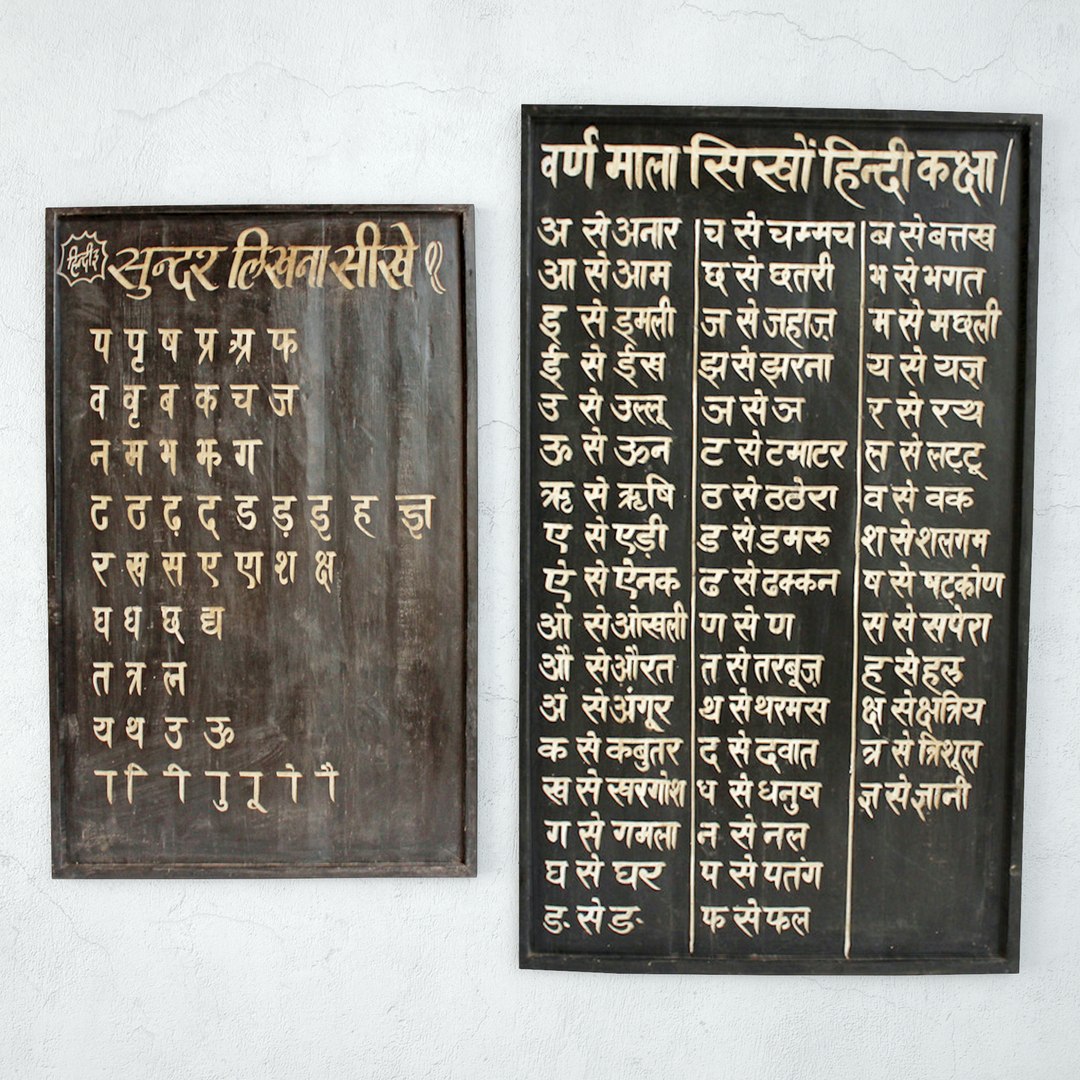 हिन्दी ३
सुन्दर लिखना सीखे
प पृ ष प्र श्र फ
व वृ ब क च ज
न म भ झ ग
ट ठ ढ़ द ड ड़ ड़ृ ह ज्ञ
र ख स ए ण श क्ष
घ ध छ द्य
त त्र ल
य थ उ ऊ
ा ि ी ु ू े ै
वर्ण माला सिखों हिन्दी कक्षा /
अ से अनार
आ से आम
इ से इमली
ई से ईख
उ से उल्लू
ऊ से ऊन
ऋ से ऋषि
ए से एड़ी
ऐ से ऐनक
ओ से ओखली
औ से औरत
अं से अंगूर
क से कबुतर
ख से खरगोश
ग से गमला
घ से घर
ङ से ङ
च से चम्मच
छ से छतरी
ज से जहाज़
झ से झरना
ञ से ञ
ट से टमाटर
ठ से ठठेरा
ड से डमरू
ढ से ढक्कन
ण से ण
त से तरबूज़
थ से थरमस
द से दवात
ध से धनुष
न से नल
प से पतंग
फ से फल
ब से बत्तख
भ से भगत
म से मछली
य से यज्ञ
र से रथ
ल से लट्टू
व से वक
श से शलगम
ष से षट्कोण
स से सपेरा
ह से हल
क्ष से क्षत्रिय
त्र से त्रिशूल
ज्ञ से ज्ञानी